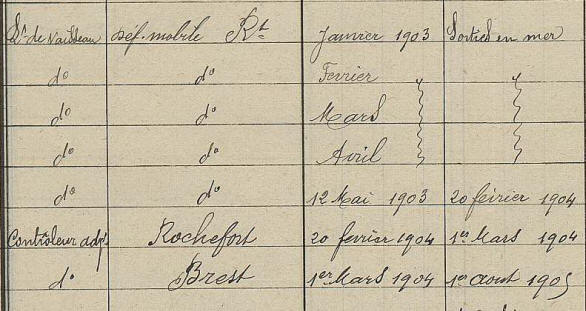 Lt de Vaisseau déf. mobile Rt Janvier 1903 Sorties en mer
do do Fevrier
do do Mars
do do Avril
do do 12 Mai 1903 20 février 1904
Contrôleur adjt Rochefort 20 fevrier 1904 1er Mars 1904
do Brest 1er Mars 1904 1er aout 1905